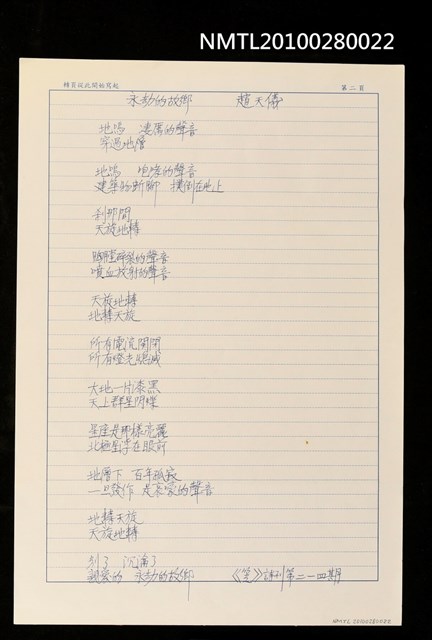 NMTL20100280022
轉頁從此開始寫起 第二頁
永劫的故鄉 趙天儀
地鳴 淒厲的聲音
穿過地層
地鳴 咆哮的聲音
建築物斷腳 撲倒在地上
剎那間
天旋地轉
碎裂的聲音
噴血放射的聲音
天旋地轉
地轉天旋
所有電流關閉
所有燈光熄滅
大地一片漆黑
天上群星閃爍
星座是那樣亮麗
北極星浮在眼前
地層下 百年孤寂
一旦發作 是哀嚎的聲音
地轉天旋
天旋地轉
別了 沉淪了
親愛的 永劫的故鄉 《笠》詩刊第二一四期
NMTL20100280022